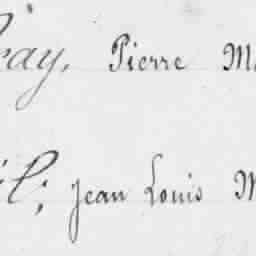 ray, Pierre M
il; Jean Louis M